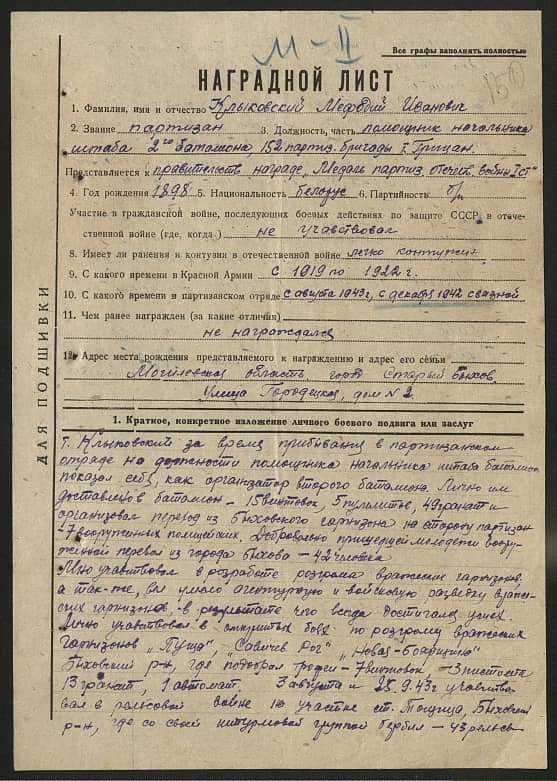 М-II
Все графы заполнять полностью
НАГРАДНОЙ ЛИСТ
1. Фамилия, имя и отчество Клыковский Мефодий Иванович
2. Звание партизан 3. Должность, часть помощник начальника
штаба 2го батальона 152 партиз. бригады т. Грицан.
Представляется к правительств. награде, „Медаль партиз. отечеств. войны I ст“
4. Год рождения 1898 5. Национальность белорус 6. Партийность б/п
Участие в гражданской войне, последующих боевых действиях по защите СССР в отече-
ственной войне (где, когда) не учавствовал
8. Имеет ли ранения и контузии в отечественной войне легко контужен
9. С какого времени в Красной Армии с 1919 по 1922 г.
10. С какого времени в партизанском отряде с августа 1943 г., с декабря 1942 связной
11. Чем ранее награжден (за какие отличия)
не награждался
12. Адрес места рождения представляемого к награждению и адрес его семьи
Могилевская область город Старый Быхов
Улица Городецкая, дом № 2.
ДЛЯ ПОДШИВКИ
1. Краткое, конкретное изложение личного боевого подвига или заслуг
т. Клыковский за время прибывания в партизанском
отряде на должности помощника начальника штаба батальона
показал себя, как организатор второго батальона. Лично им
доставлено в батальон — 15 винтовок, 5 пулиметов, 49 гранат и
организовал переход из Быховского гарнизона на сторону партизан
— 7 вооруженных полицейских. Добровольно пришедшей молодежи воору-
женной перевел из города Быхова — 42 человека
учавствовал в разработе разгрома вражеских гарнизонов,
а так-же, вел умело агентурную и войсковую разведку враже-
ских гарнизонов, в результате чего всегда достигался успех.
Лично учавствовал в открытых боях по разгрому вражеских
гарнизонов „Гуща“, „Савичев Рог“, „Новая-боярщина“
Быховский р-н, где подобрал трофеи — 7 винтовок — 3 пистолета
13 гранат, 1 автомат. 3 августа и 25.9.43г учавство-
вал в рельсовой войне на участке ст. Тощица, Быховский
р-н, где со своей штурмовой группой — 43 рельсы